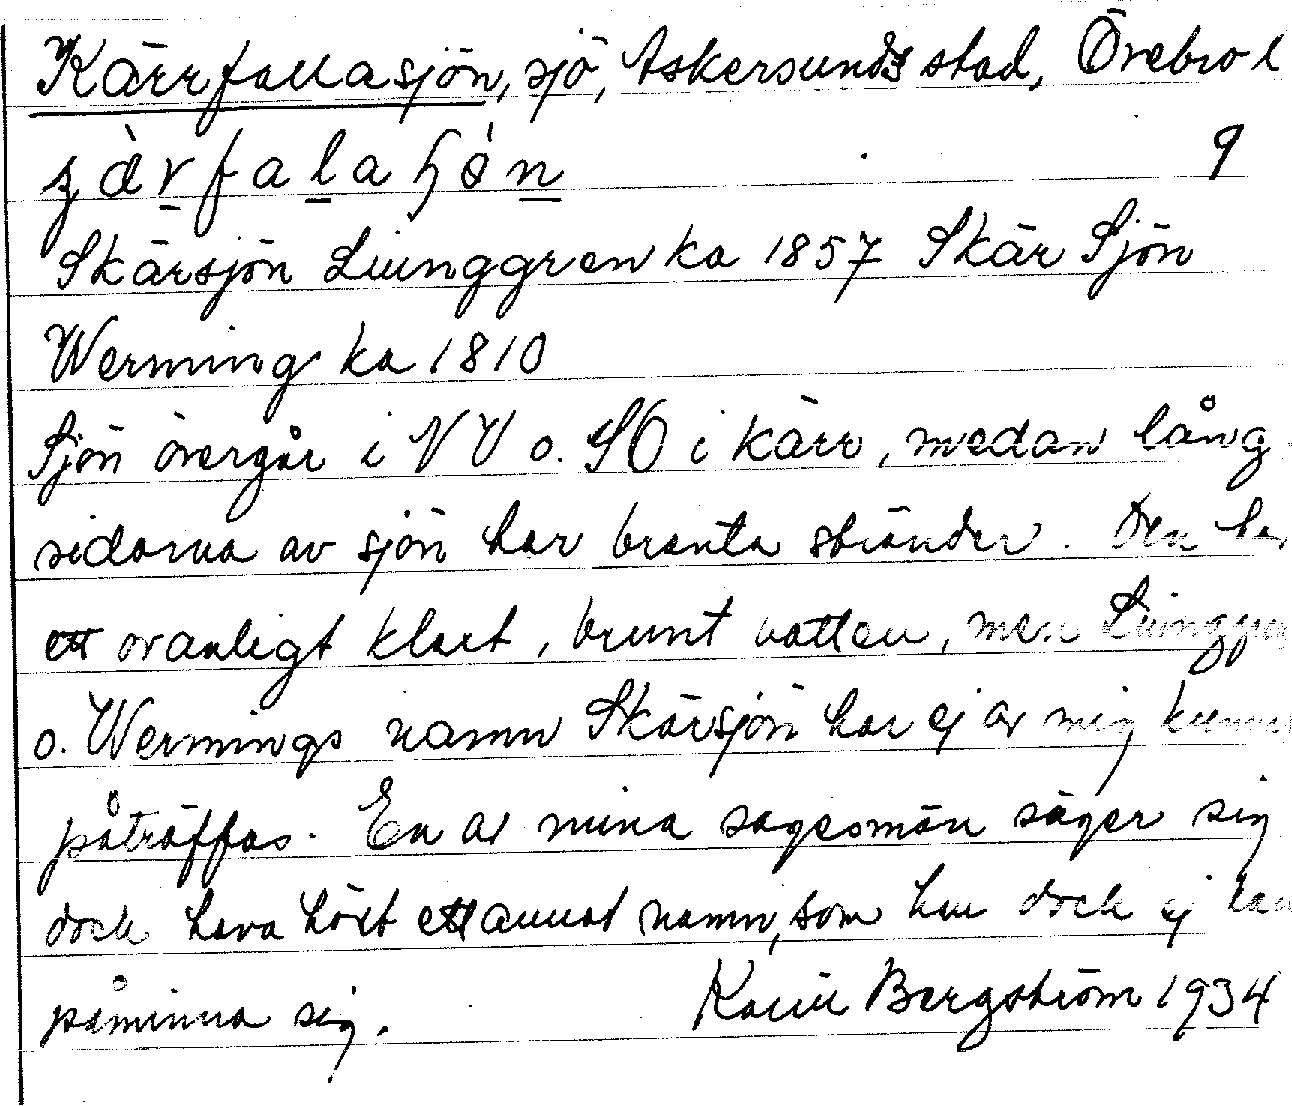 Kärrfallasjön, sjö, Askersunds stad, Örebro l
9
Skärsjön Liunggren ka 1857 Skär Sjön
Werming ka 1810
Sjön övergår i NV o. SO i kärr, medan lång
sidorna av sjön har branta stränder. Den har
ett ovanligt klart, brunt vatten, men Liunggrens
o. Wermings namn Skärsjön har ej av mig kunnat
påträffas. En av mina sagesmän säger sig
dock hava hört ett annat namn, som hon dock ej kan
påminna sig. Karin Bergström 1934